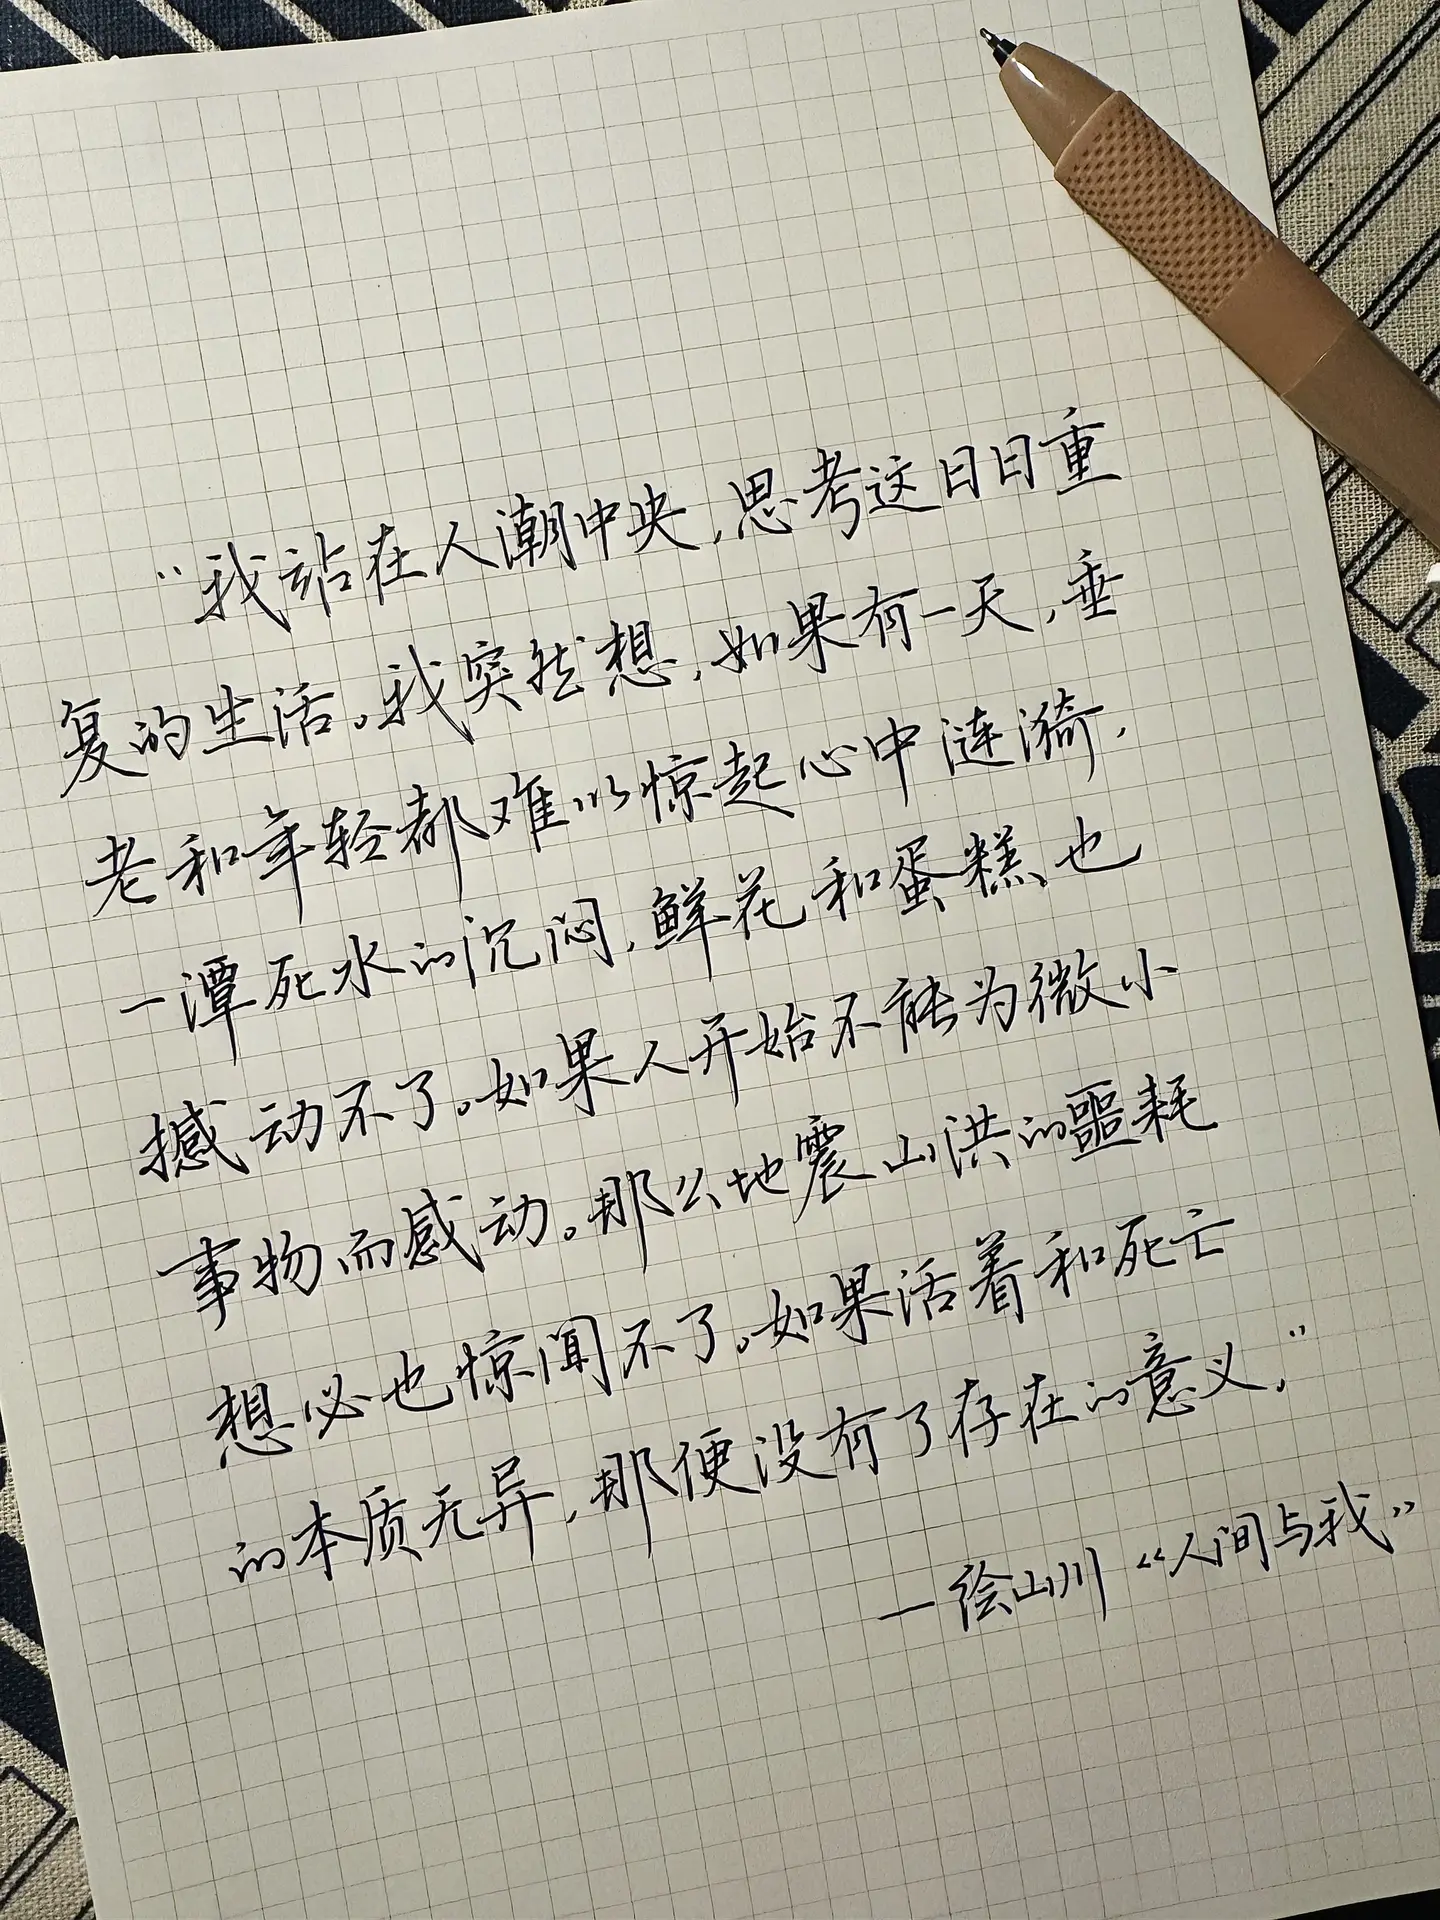 “我站在人潮中央,思考这日日重
复的生活。我突然想,如果有一天,垂
老和年轻都难以惊起心中涟漪,
一潭死水的沉闷,鲜花和蛋糕也
撼动不了。如果人开始不能为微小
事物而感动。那么地震山洪的噩耗
想必也惊闻不了。如果活着和死亡
的本质无异,那便没有了存在的意义,”
—绘山川《人间与我》